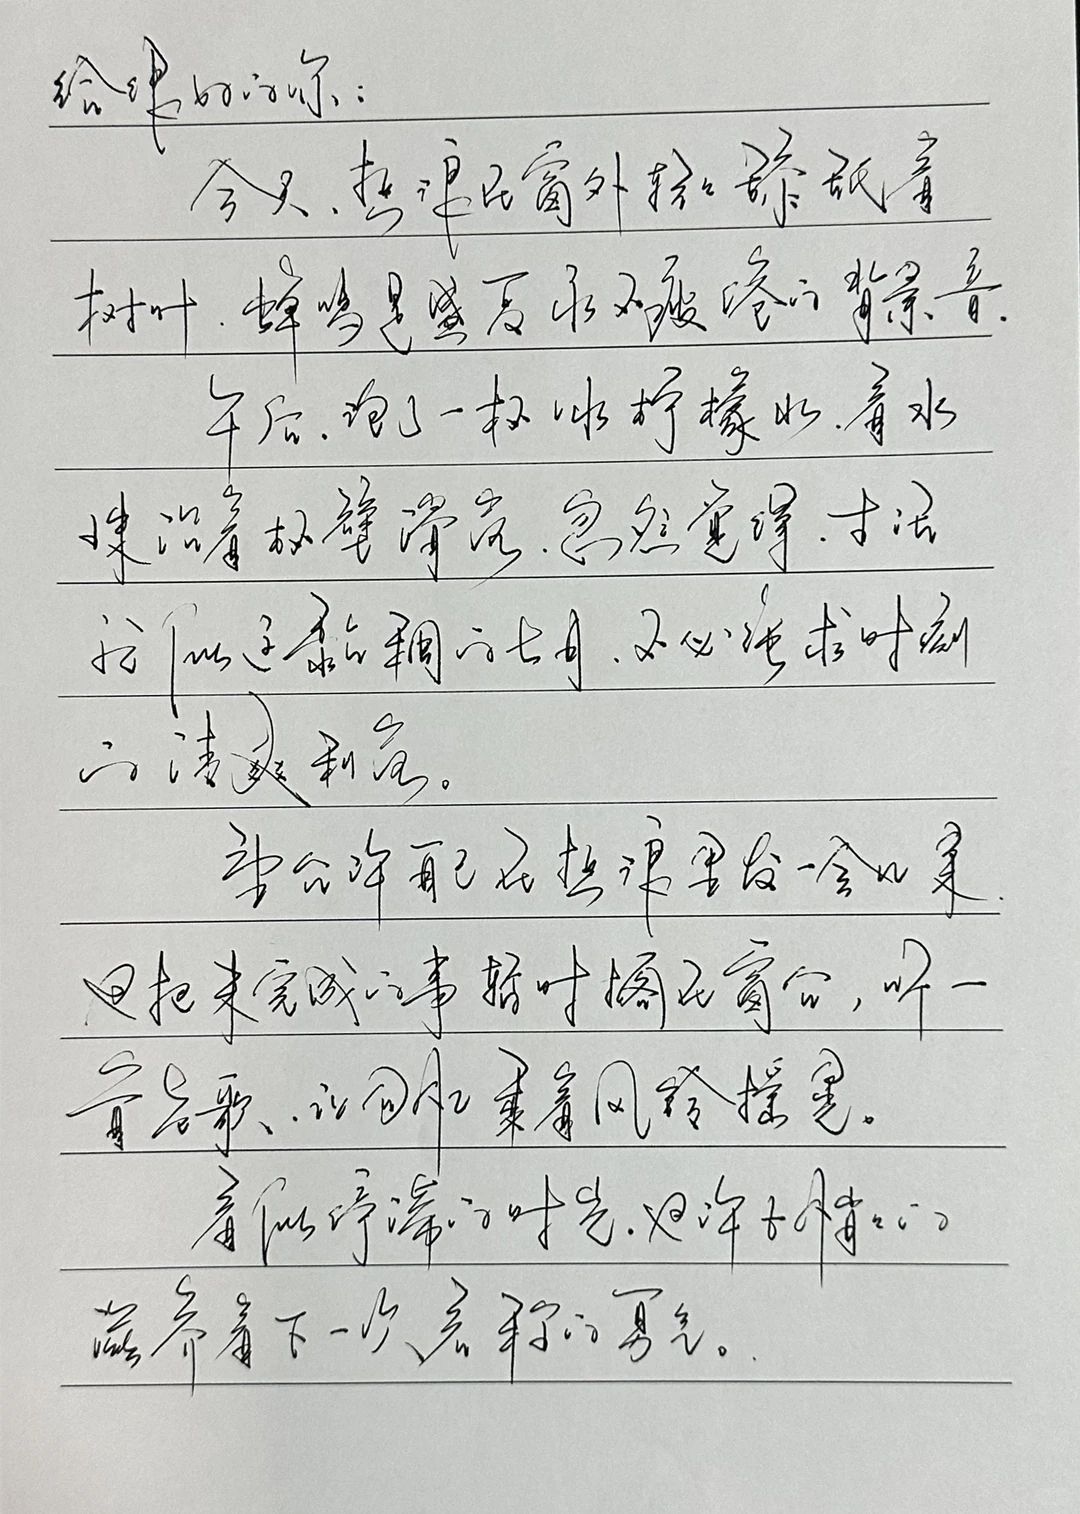 给很好的你：
今天，热浪在窗外轻轻舔舐着
树叶，蝉鸣是盛夏永不疲倦的背景音。
午后，泡了一杯冰柠檬水，看水
珠沿着杯壁滑落，忽然觉得，生活
就像这黏稠的七月，不必强求时刻
的清爽利落。
要允许自己在热浪里发一会儿呆，
也把未完成的事暂时搁在窗台，听一
首老歌，让回忆乘着风轻摇晃。
看似停滞的时光，也许在悄悄的
滋养着下一次启程的勇气。